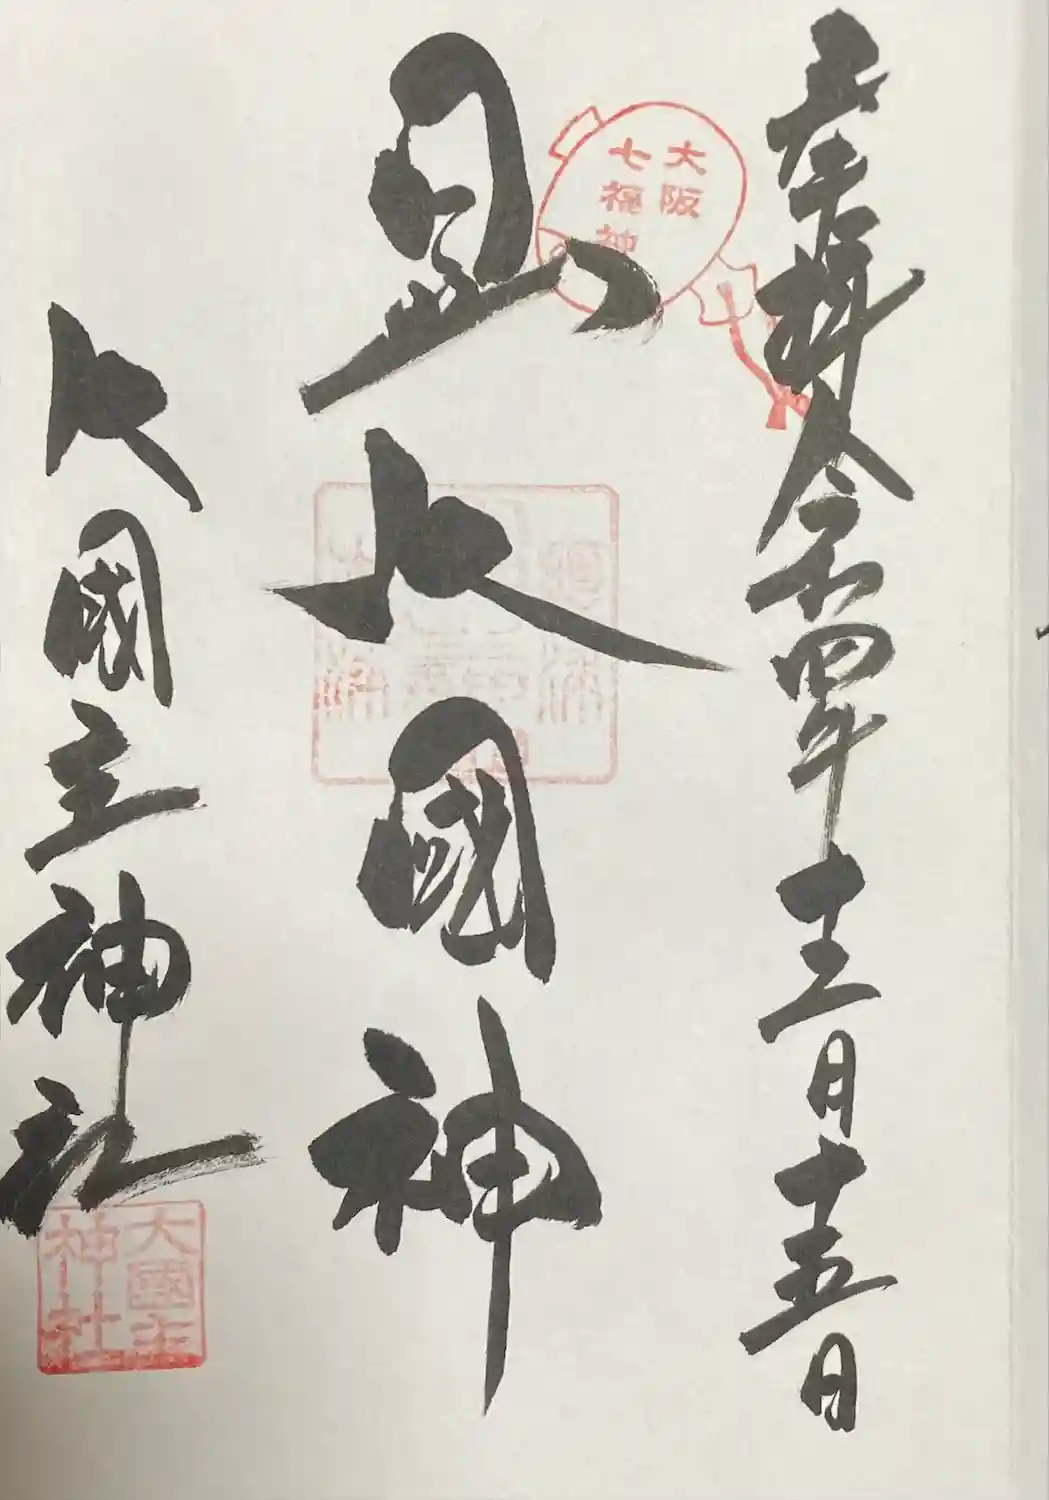 奉拝 令和四年十二月十五日
大阪
七福神
日出大國神
大國主神社
大國主
神社